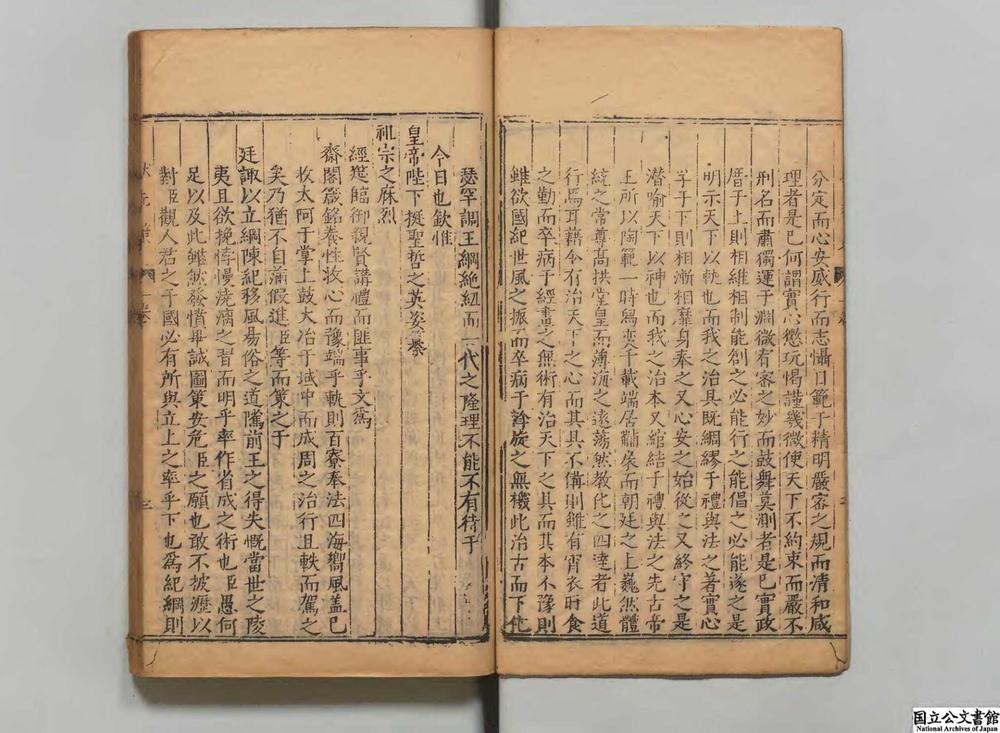 分定而心安威行而志懾日範于精明嚴密之規而清和咸
理者是已何謂實心懲玩愒謹幾微使天下不約束而嚴不
刑名而肅獨運于淵微有密之妙而鼓舞莫測者是已實政
厝于上則相維相制能創之必能行之能倡之必能遂之是
明示天下以軌也而我之治具既綢繆于禮與法之著實心
孚于下則相漸相靡身奉之又心安之始從之又終守之是
潛喻天下以神也而我之治本又綰結于禮與法之先古帝
王所以陶範一時為奕千載端居黼扆而朝廷之上巍然體
統之常尊高拱堂皇而薄海之遠蕩然教化之四達者此道
行焉耳藉令有治天下之心而其具不備則雖有宵衣旰食
之勤而卒病于經畫之無術有治天下之具而其本不豫則
雖欲國紀世風之振而卒病于斡旋之無機此治古而下化
瑟罕調王綱絕紐而二代之隆理不能不有待于
今日也欽惟
皇帝陛下挺聖哲之英姿纂
祖宗之庥烈
經筵臨御親賢講禮而匪事乎文為
齋閣箴銘養性收心而豫端乎軌則百寮奉法四海嚮風蓋已
收太阿于掌上鼓大冶于域中而成周之治行且軼而駕之
矣乃猶不自滿假進臣等而策之于
廷諏以立綱陳紀移風易俗之道隲前王之得失慨當世之陵
夷且欲挽悖慢澆漓之習而明乎率作省成之術也臣愚何
足以及此雖然發憤畢誠圖策安危臣之願也敢不披瀝以
對臣觀人君之于國必有所與立上之率乎下也為紀綱則
狀元
三
国立公文書館
National Archives of Japan